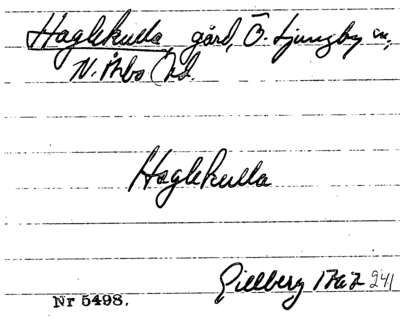 Haglekulla, gård, Ö. Ljungby sn,
N. Åsbo hd.
Haglekulla
Gillberg 1767 241
Nr 5498.